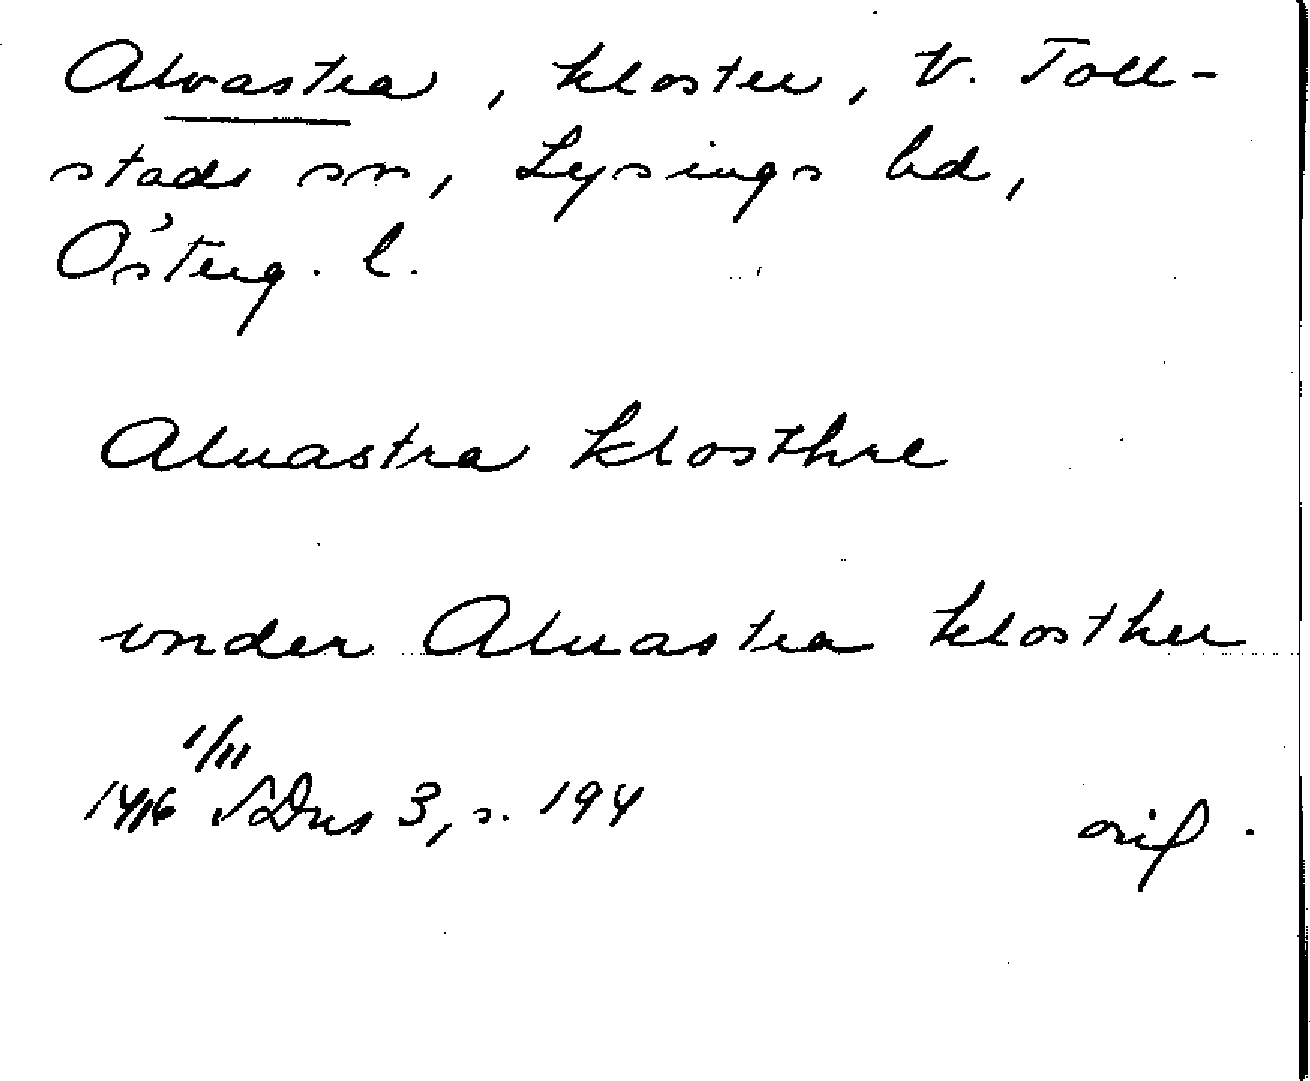 Alvastra, kloster, V. Toll-
stads sn, Lysings hd,
Österg. l.
Aluastra klosthre
vnder Aluastra klosther
1/11
1416 SDns 3, s. 194
orig.